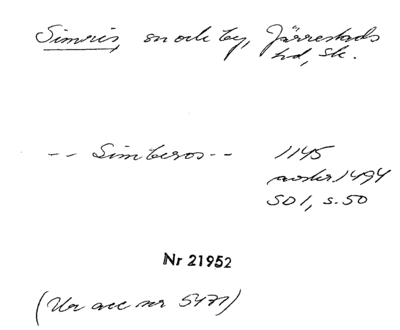 Simris, sn och by, Järrestads
hd, Sk.
-- Simberos --
1145
avskr 1494
SD 1, s. 50
Nr 21952
(Ur acc nr 5471)